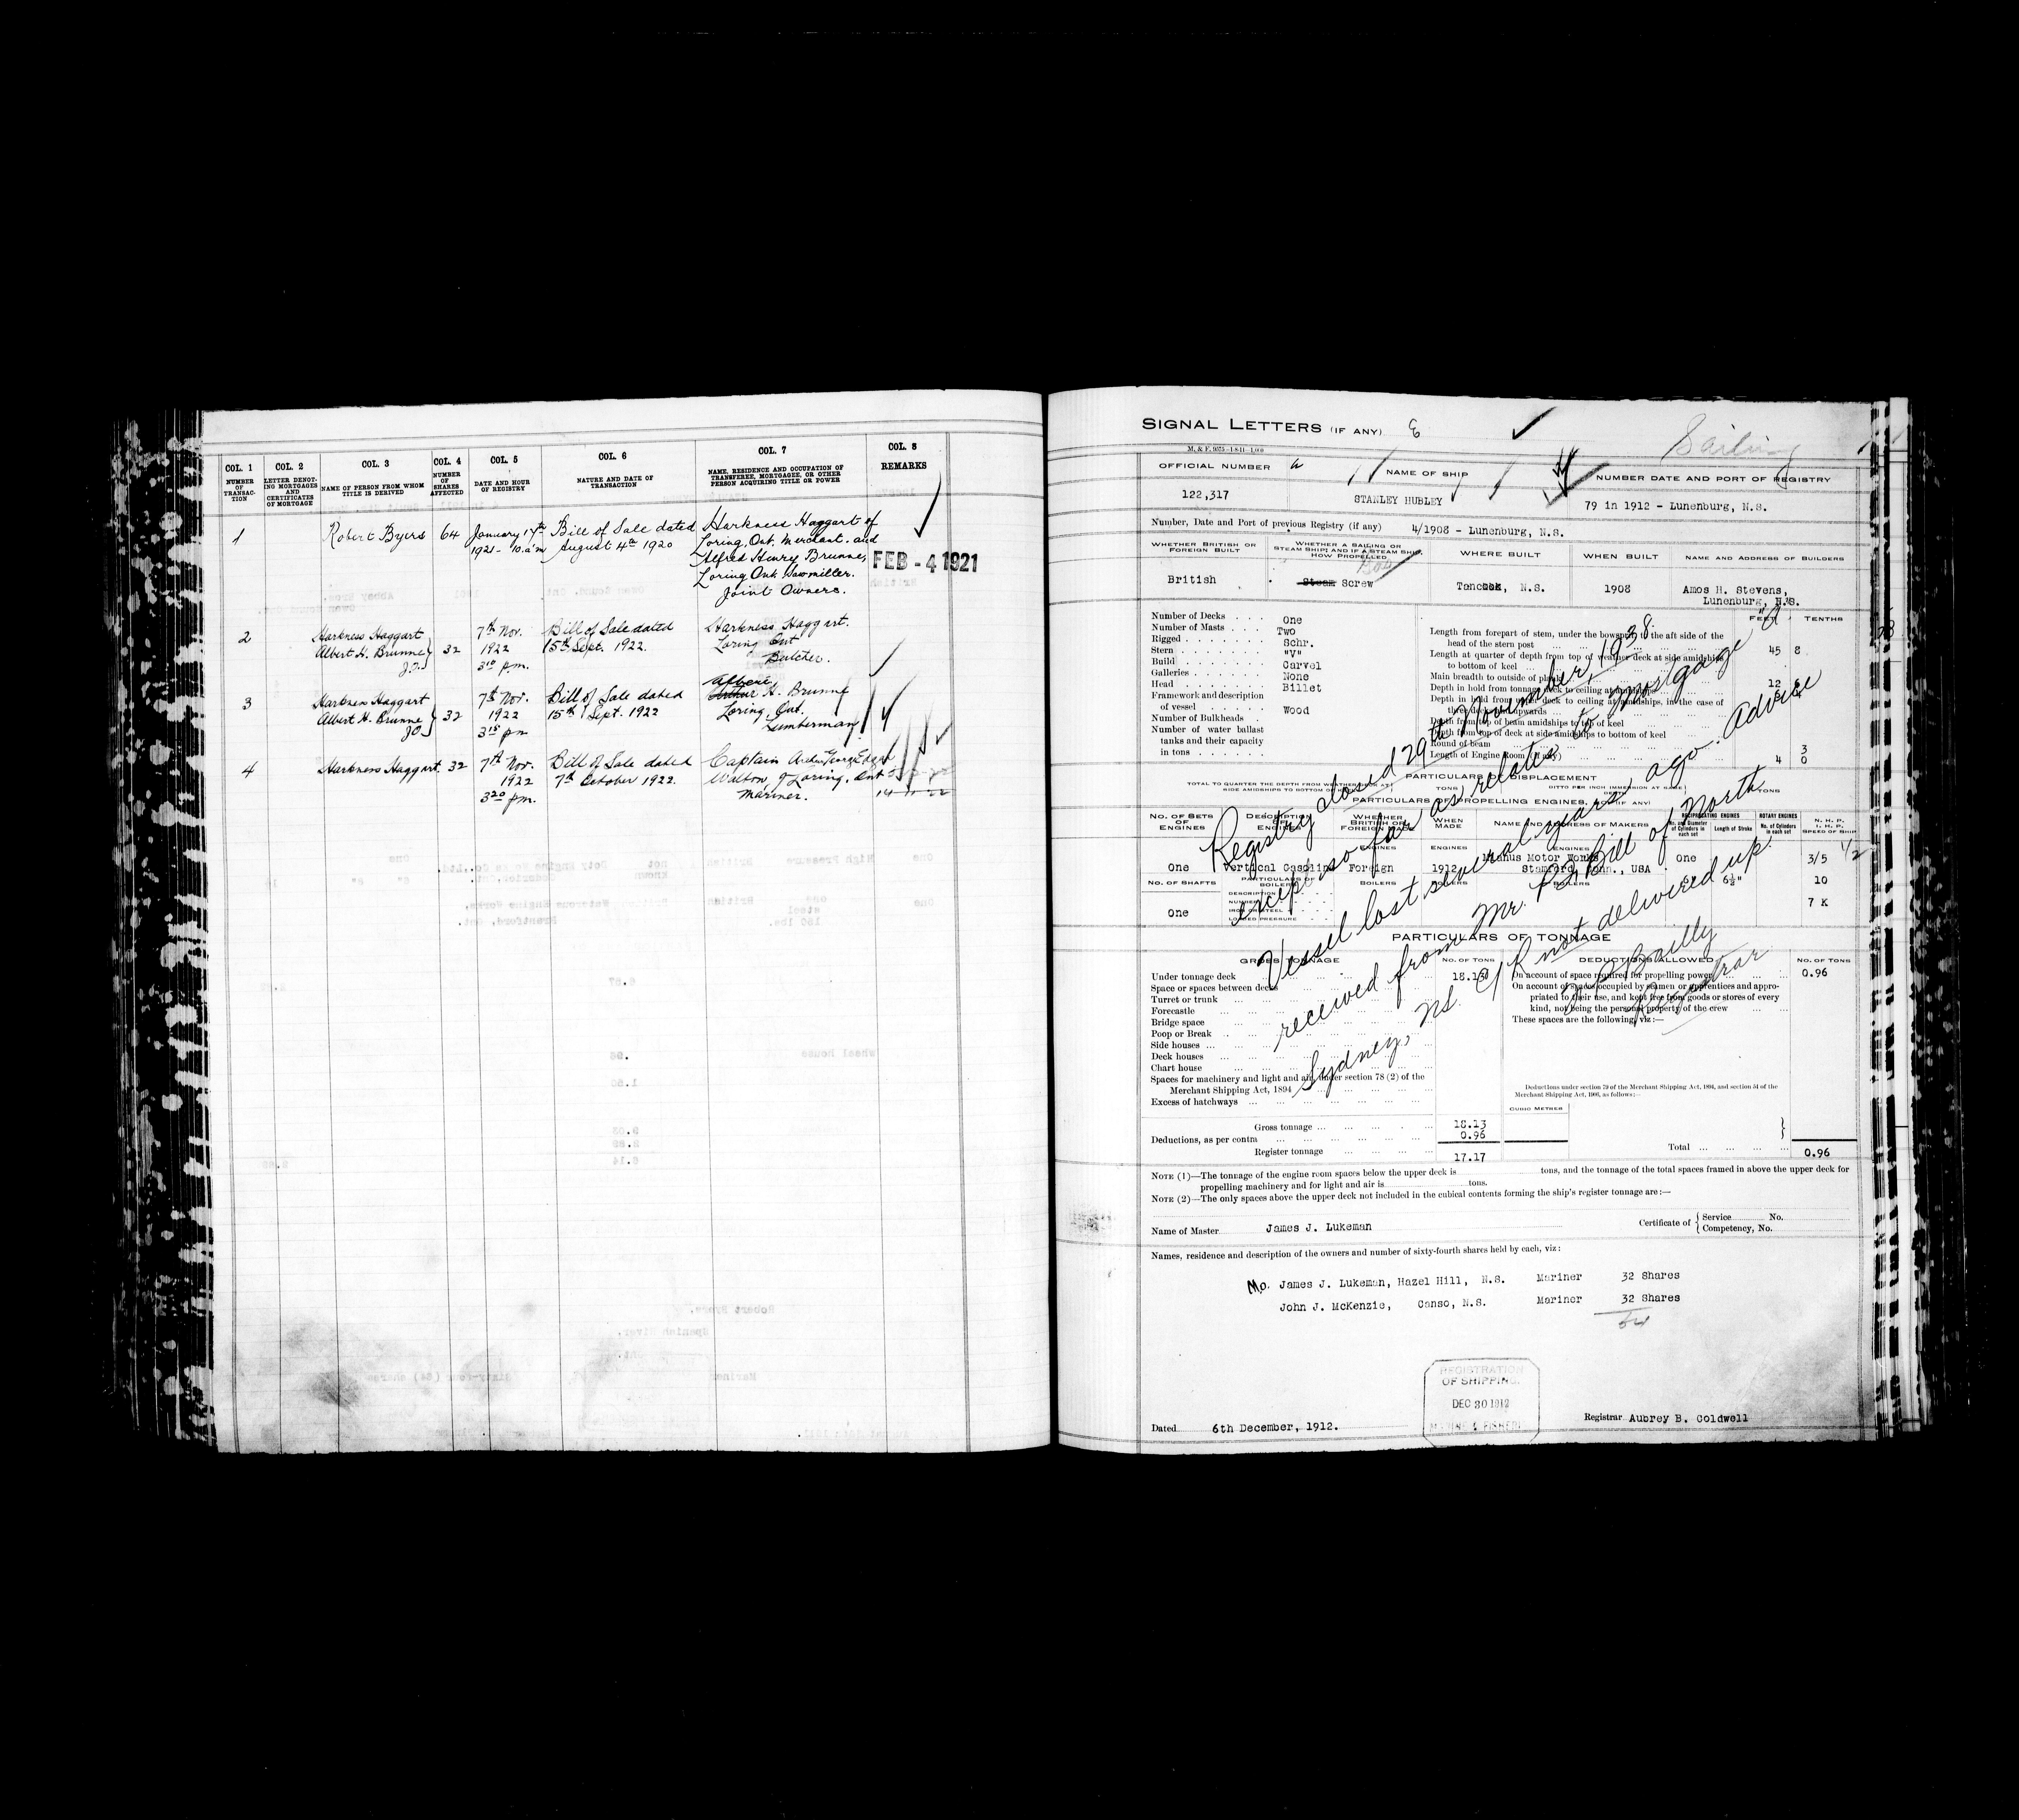 COL. 1
NUMBER OF TRANSAC-TION
COL. 2
LETTER DENOT-ING MORTGAGES AND CERTIFICATES OF MORTGAGE
COL. 3
NAME OF PERSON FROM WHOM TITLE IS DERIVED
COL. 4
NUMBER OF SHARES AFFECTED
COL. 5
DATE AND HOUR OF REGISTRY
COL. 6
NATURE AND DATE OF TRANSACTION
COL. 7
NAME, RESIDENCE AND OCCUPATION OF TRANSFEREE, MORTGAGEE, OR OTHER PERSON ACQUIRING TITLE OR POWER
COL. 8
REMARKS
1 Robert Byers 64 January 17th Bill of Sale dated Harkness Haggart of
1921 - 10. a.m August 4th 1920 Loring, Ont. Merchant. and
Alfred Henry Brunne, FEB - 4 1921
Loring Ont. Sawmiller.
Joint Owners.
2 Harkness Haggart 32 7th Nov. Bill of Sale dated Harkness Haggart.
Albert H. Brunne 1922 15th Sept. 1922. Loring Ont
J.O. 3 10 pm. Butcher.
3 Harkness Haggart 32 7th Nov. Bill of Sale dated Albert H. Brunne
Albert H. Brunne 1922 15th Sept. 1922 Loring, Ont.
JO 3 15 pm Lumberman
4 Harkness Haggart. 32 7th Nov. Bill of Sale dated Captain George
1922 7th October 1922. Walton, of Loring, Ont
3 20 pm. Mariner.
SIGNAL LETTERS (IF ANY)
Sailing
M. & F. 9575-1-8-11-1,000
OFFICIAL NUMBER NAME OF SHIP NUMBER DATE AND PORT OF REGISTRY
122,317 STANLEY HUBLEY 79 in 1912 - Lunenburg, N.S.
Number, Date and Port of previous Registry (if any) 4/1908 - Lunenburg, N.S.
WHETHER BRITISH OR FOREIGN BUILT
WHETHER A SAILING OR STEAM SHIP; AND IF A STEAM SHIP, HOW PROPELLED
WHERE BUILT
WHEN BUILT
NAME AND ADDRESS OF BUILDERS
British Steam Screw Tancook, N.S. 1908 Amos H. Stevens,
Lunenburg, N.S.
FEET TENTHS
Number of Decks One
Number of Masts Two
Rigged Schr.
Stern "V"
Build Carvel
Galleries None
Head Billet
Framework and description
of vessel Wood
Number of Bulkheads
Number of water ballast
tanks and their capacity
in tons
Length from forepart of stem, under the bowsprit, to the aft side of the
head of the stern post 45 8
Length at quarter of depth from top of weather deck at side amidships
to bottom of keel
Main breadth to outside of plank 12
Depth in hold from tonnage deck to ceiling at amidships
Depth in hold from upper deck to ceiling at amidships, in the case of
three decks and upwards
Depth from top of beam amidships to top of keel
Depth from top of deck at side amidships to bottom of keel
Round of beam 3
Length of Engine Room (if any) 4 0
PARTICULARS OF DISPLACEMENT
TOTAL TO QUARTER THE DEPTH FROM WEATHER DECK AT SIDE AMIDSHIPS TO BOTTOM OF KEEL TONS DITTO PER INCH IMMERSION AT SAME TONS
PARTICULARS OF PROPELLING ENGINES, &c. (IF ANY)
NO. OF SETS OF ENGINES
DESCRIPTION OF ENGINES
WHETHER BRITISH OR FOREIGN MADE
WHEN MADE
NAME AND ADDRESS OF MAKERS
RECIPROCATING ENGINES
No. and Diameter of Cylinders in each set
Length of Stroke
ROTARY ENGINES
No. of Cylinders in each set
N. H. P.
I. H. P.
SPEED OF SHIP
ENGINES ENGINES ENGINES
One Vertical Gasoline Foreign 1912 Mianus Motor Works One 3/5 1/2
Stamford, Conn., USA 6½" 10
NO. OF SHAFTS
PARTICULARS OF BOILERS
BOILERS BOILERS BOILERS
DESCRIPTION
NUMBER
IRON OR STEEL
LOADED PRESSURE
One 7 K
Registry closed 29th November, 1938
except so far as relates to mortgage "A"
Vessel lost several years ago. Advice
received from Mr. Bill of North
Sydney, NS. C/R not delivered up.
Bailly
Registrar
PARTICULARS OF TONNAGE
GROSS TONNAGE NO. OF TONS DEDUCTIONS ALLOWED NO. OF TONS
Under tonnage deck 18.13
Space or spaces between decks
Turret or trunk
Forecastle
Bridge space
Poop or Break
Side houses
Deck houses
Chart house
Spaces for machinery and light and air, under section 78 (2) of the
Merchant Shipping Act, 1894
Excess of hatchways
Gross tonnage 18.13
Deductions, as per contra 0.96
Register tonnage 17.17
On account of space required for propelling power 0.96
On account of spaces occupied by seamen or apprentices and appro-
priated to their use, and kept free from goods or stores of every
kind, not being the personal property of the crew
These spaces are the following, viz:—
Deductions under section 79 of the Merchant Shipping Act, 1894, and section 54 of the
Merchant Shipping Act, 1906, as follows:—
CUBIC METRES
Total 0.96
NOTE (1)—The tonnage of the engine room spaces below the upper deck is tons, and the tonnage of the total spaces framed in above the upper deck for
propelling machinery and for light and air is tons.
NOTE (2)—The only spaces above the upper deck not included in the cubical contents forming the ship's register tonnage are:—
Name of Master James J. Lukeman Certificate of { Service No.
Competency, No.
Names, residence and description of the owners and number of sixty-fourth shares held by each, viz:
Mo. James J. Lukeman, Hazel Hill, N.S. Mariner 32 Shares
John J. McKenzie, Canso, N.S. Mariner 32 Shares
64
REGISTRATION
OF SHIPPING.
DEC 30 1912
MARINE & FISHERI
Dated 6th December, 1912.
Registrar Aubrey B. Coldwell